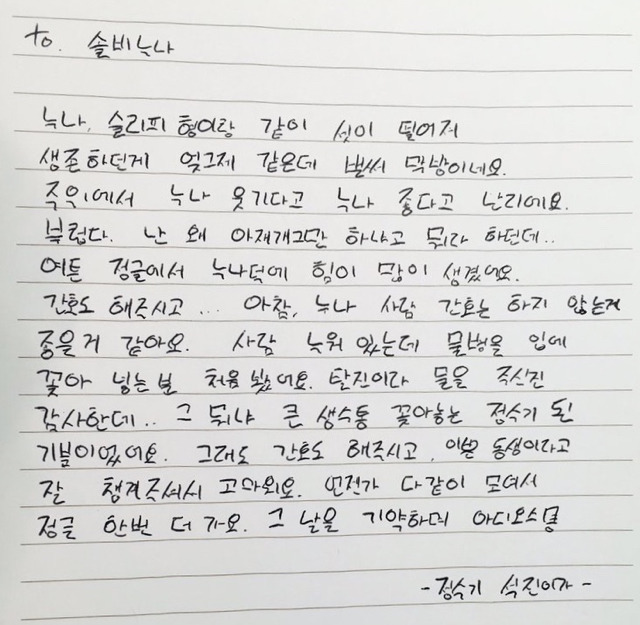 to. 솔비누나
누나, 슬리피 형이랑 같이 셋이 떨어져
생존하던게 엊그제 같은데 벌써 막방이네요.
주위에서 누나 웃기다고 누나 좋다고 난리에요.
부럽다. 난 왜 아재개그만 하냐고 뭐라 하던데..
여튼 정글에서 누나덕에 힘이 많이 생겼어요.
간호도 해주시고... 아참, 누나 사람 간호는 하지 않는게
좋을거 같아요. 사람 누워 있는데 물병을 입에
꽂아 넣는분 처음 봤어요. 탈진이라 물을 주신건
감사한데.. 그 뭐냐 큰 생수통 꽂아놓는 정수기 된
기분이었어요. 그래도 간호도 해주시고, 이쁜 동생이라고
잘 챙겨주셔서 고마워요. 언젠가 다같이 모여서
정글 한번 더 가요. 그 날을 기약하며 아디오스명
-정수기 석진이가-